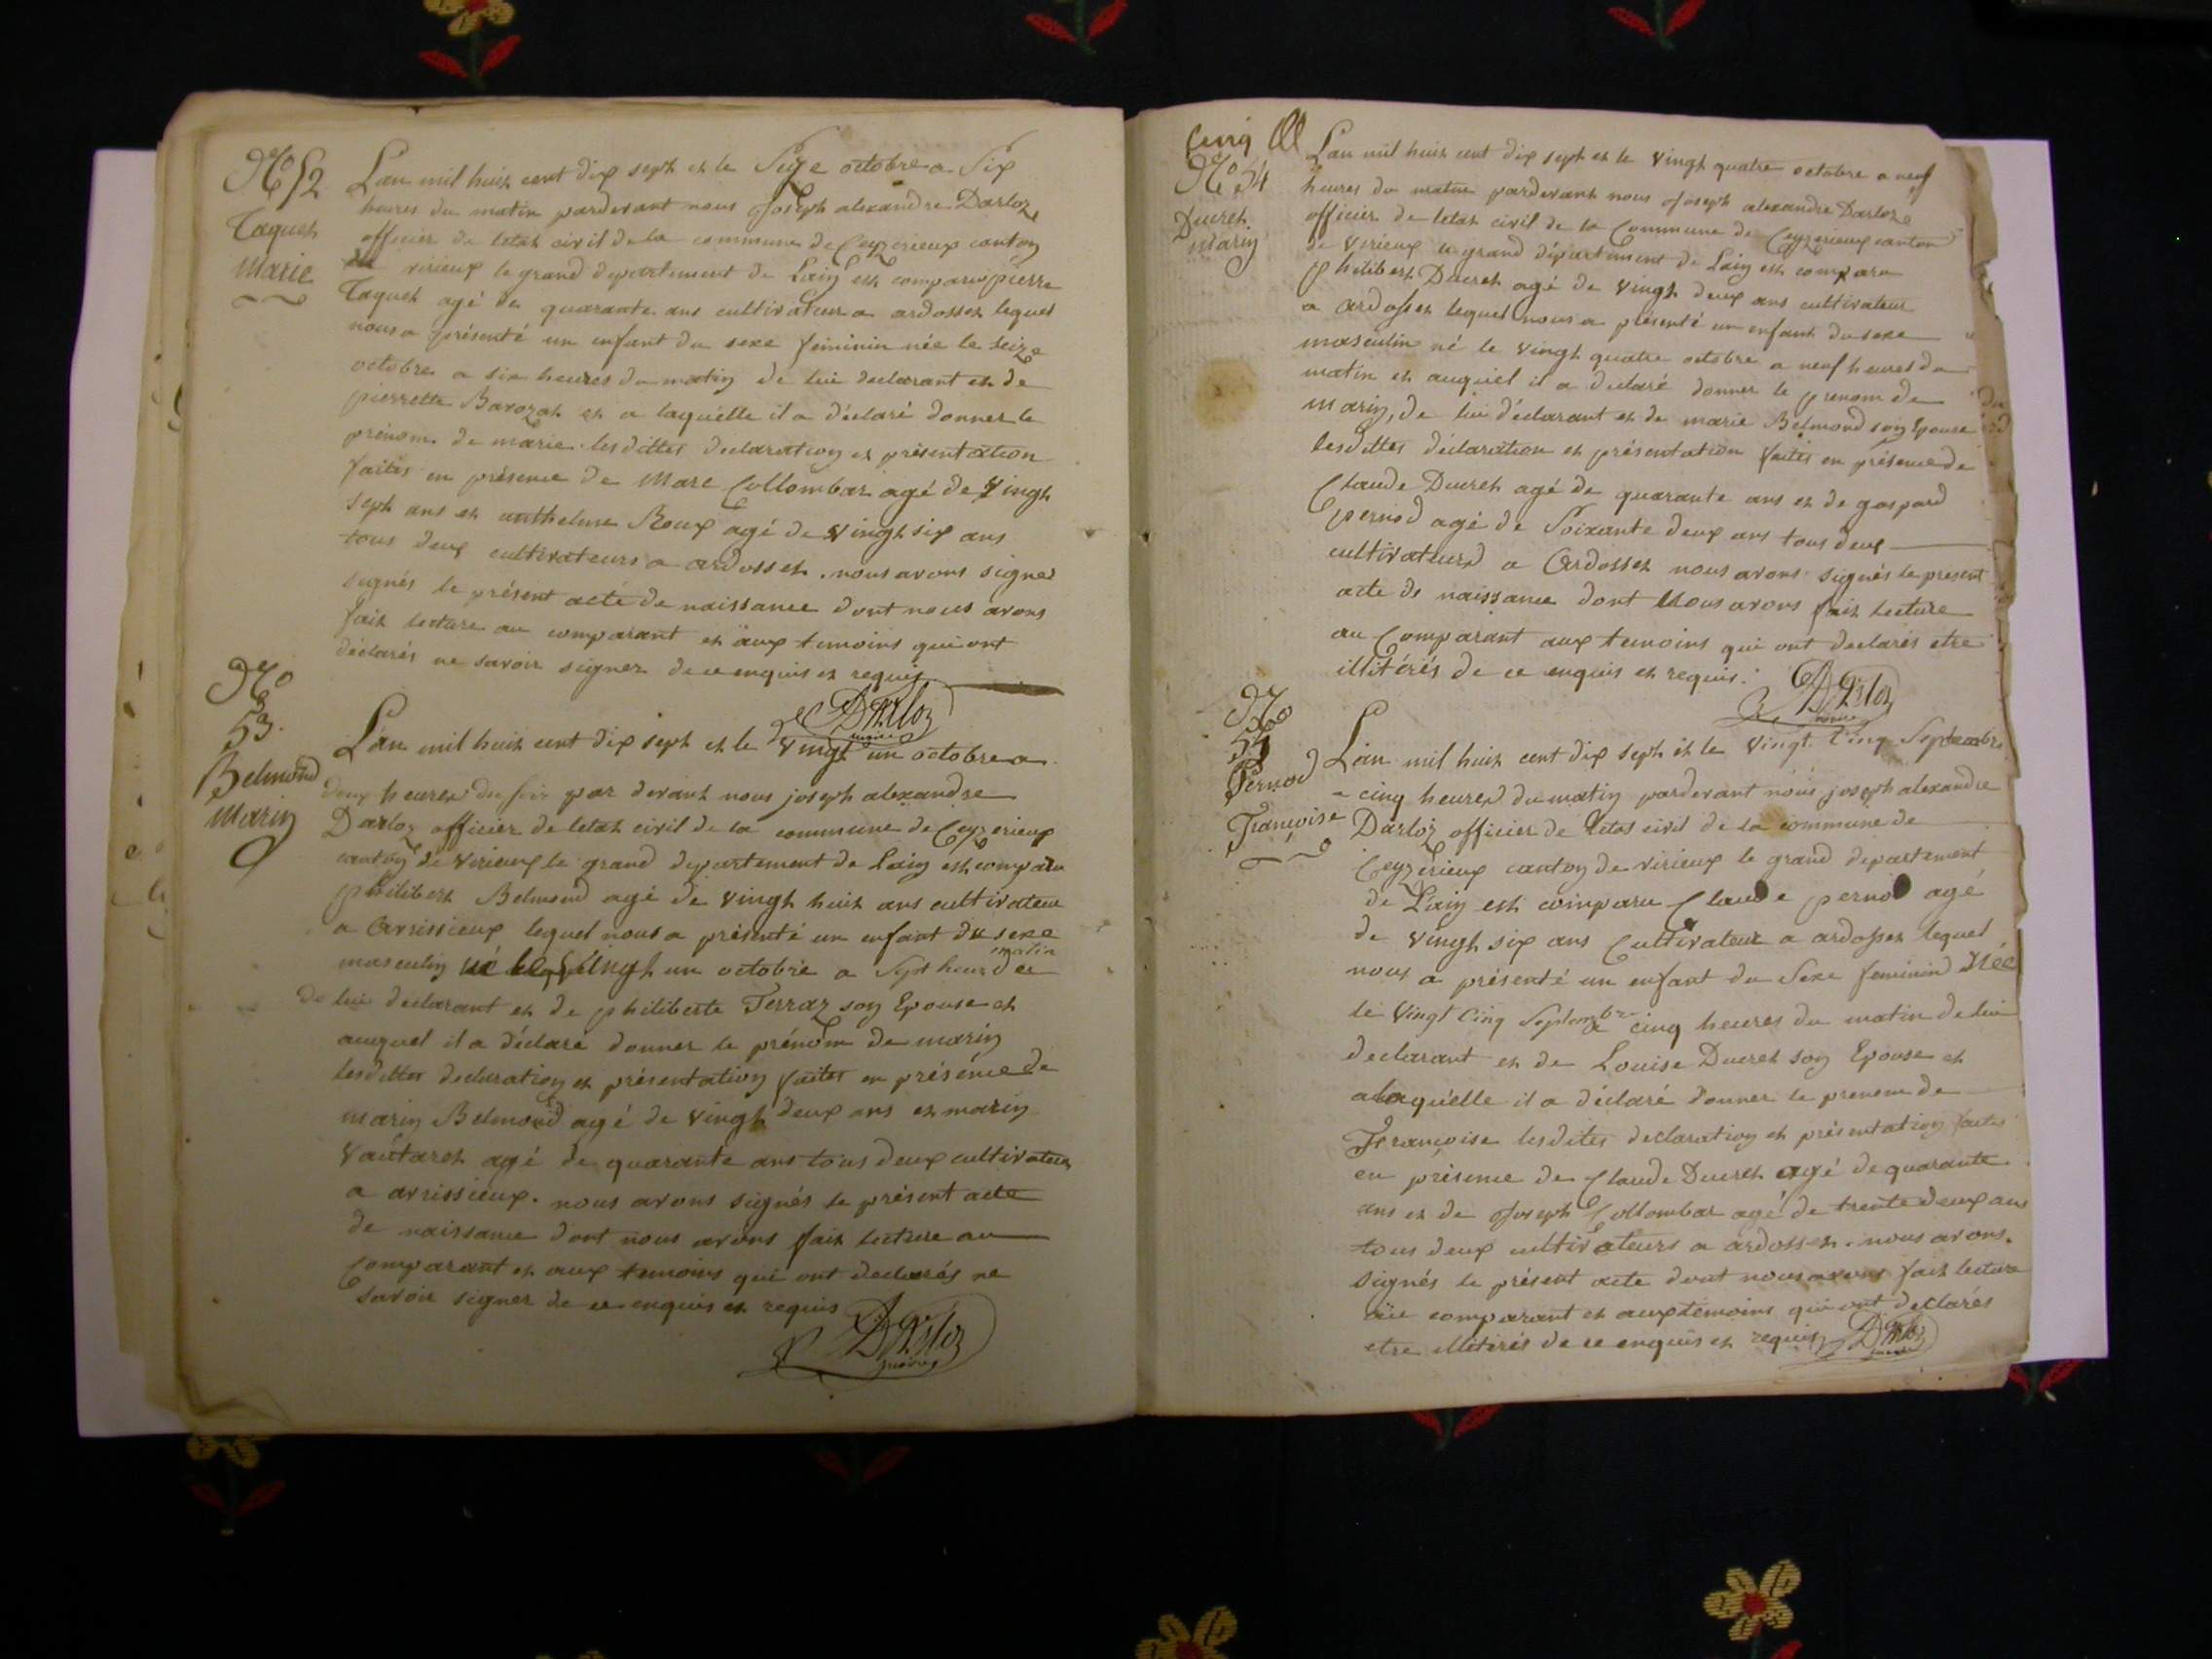 No 52
Taquet
Marie
Lan mil huit cent dix sept et le Seize octobre a Six
heures du matin pardevant nous Joseph alexandre Darloz
officier de letat civil de la commune de Ceyzerieux canton
de virieux le grand departement de Lain est comparu pierre
Taquet agé de quarante ans cultivateur a ardosset lequel
nous a présenté un enfant du sexe feminin née le seize
octobre a six heures du matin de lui declarant et de
pierrette Barozat et a laquélle il a déclaré donner le
prénom de marie. les dittes declaration et présentation
faites en présence de Marc Collombar agé de Vingt
sept ans et anthelme Roux agé de vingt six ans
tous deux cultivateurs a ardosset. nous avons signes
signés le présent acté de naissance dont nous avons
fait lecture au comparant et aux temoins qui ont
déclarés ne savoir signer de ce enquis et requis.
Darloz
maire
No
53.
Belmond
Marin
Lan mil huit cent dix sept et le vingt un octobre a
deux heures du soir par devant nous joseph alexandre
Darloz officier de letat civil de la commune de Ceyzerieux
canton de Virieux le grand departement de Lain est comparu
philibert Belmond agé de vingt huit ans cultivateur
a Avrissieux lequel nous a présenté un enfant du sexe
masculin né le vingt un octobre a Sept heur du matin
de lui declarant et de philiberte Terraz son Epouse et
auquel il a déclaré donner le prénom de marin
lesdittes declaration et présentation faites en présence de
marin Belmond agé de vingt deux ans et marin
Vautaret agé de quarante ans tous deux cultivateurs
a avrissieux. nous avons signés le présent acte
de naissance dont nous avons fait lecture au
Comparant et aux temoins qui ont declarés ne
savoir signer de ce enquis et requis
Darloz
maire
Cinq
No 54
Ducret
Marin
Lan mil huit cent dix sept et le vingt quatre octobre a neuf
heures du matin pardevant nous Joseph alexandre Darloz
officier de letat civil de la Commune de Ceyzerieux canton
de Virieux le grand département de Lain est comparu
Philibert Ducret agé de vingt deux ans cultivateur
a ardosset lequel nous a présenté un enfant du sexe
masculin né le vingt quatre octobre a neuf heures du
matin et auquel il a declaré donner le prenom de
Marin, de lui déclarant et de marie Belmond son Epouse
lesdittes déclaration et présentation faites en présence de
Claude Ducret agé de quarante ans et de gaspard
pernod agé de Soixante deux ans tous deux
cultivateurs a Ardosset nous avons signés le present
acte de naissance dont Nous avons fait lecture
au Comparant aux temoins qui ont declarés etre
illitérés de ce enquis et requis.
Darloz
maire
No
54
Pernod
Françoise
Lan mil huit cent dix sept et le Vingt Cinq Septembre
a cinq heures du matin pardevant nous joseph alexandre
Darloz officier de letat civil de la commune de
Ceyzerieux canton de virieux le grand departement
de Lain est comparu Claude pernod agé
de vingt six ans Cultivateur a ardosset lequel
nous a présenté un enfant du Sexe feminin Née
le Vingt Cinq Septembre a cinq heures du matin de lui
declarant et de Louise Ducret son Epouse et
a laquélle il a déclaré donner le prenom de
Françoise lesdites declaration et présentation faites
en présence de Claude Ducret agé de quarante
ans et de Joseph Collombar agé de trente deux ans
tous deux cultivateurs a ardosset. nous avons
signés le présent acte dont nous avons fait lecture
au comparant et aux temoins qui ont declarés
etre illitérés de ce enquis et requis
Darloz
maire